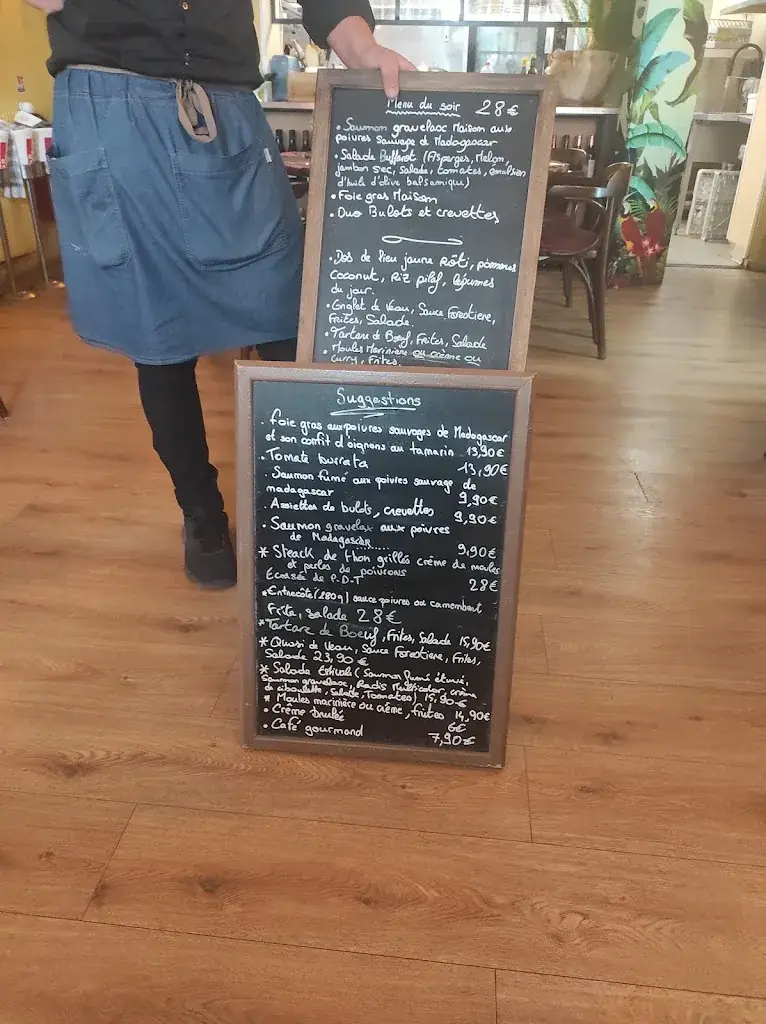 Menu du soir 28€
• Saumon gravelax Maison aux
poivres Sauvage de Madagascar
• Salade Buffarot (Asperges, Melon,
jambon sec, salade, tomates, emulsion
d'huile d'olive balsamique)
• Foie gras Maison
• Duo Bulots et crevettes
• Dos de lieu jaune Rôti, pommes
Coconut, Riz pilaf, légumes
du jour.
• Onglet de Veau, Sauce Forestiere,
Frites, Salade.
• Tartare de Bœuf, Frites, Salade
• Moules Marinière ou crème ou
curry, Frites.
Suggestions
• Foie gras aux poivres sauvages de Madagascar
et son confit d'oignons au tamarin 13,90€
• Tomate burrata 13,90€
• Saumon fumé aux poivres sauvage de
madagascar 9,90€
• Assiettes de bulots, crevettes 9,90€
• Saumon gravelax aux poivres
de Madagascar 9,90€
* Steack de thon grillés crème de moules
et perles de poivrons
Ecrasée de P.D.T 28€
* Entrecôte (280g) sauce poivres ou camembert,
Frite, salade 28€
* Tartare de Boeuf, Frites, Salade 15,90€
* Quasi de Veau, Sauce Forestiere, Frites,
Salade 23,90€
* Salade Estivale (Saumon fumé
Saumon gravelax, Radis Multicolor, crème
de ciboulette, Salade, Tomates) 15,90€
* Moules marinière ou crème, frites 14,90€
• Crême brulée 6€
• Café gourmand 7,90€